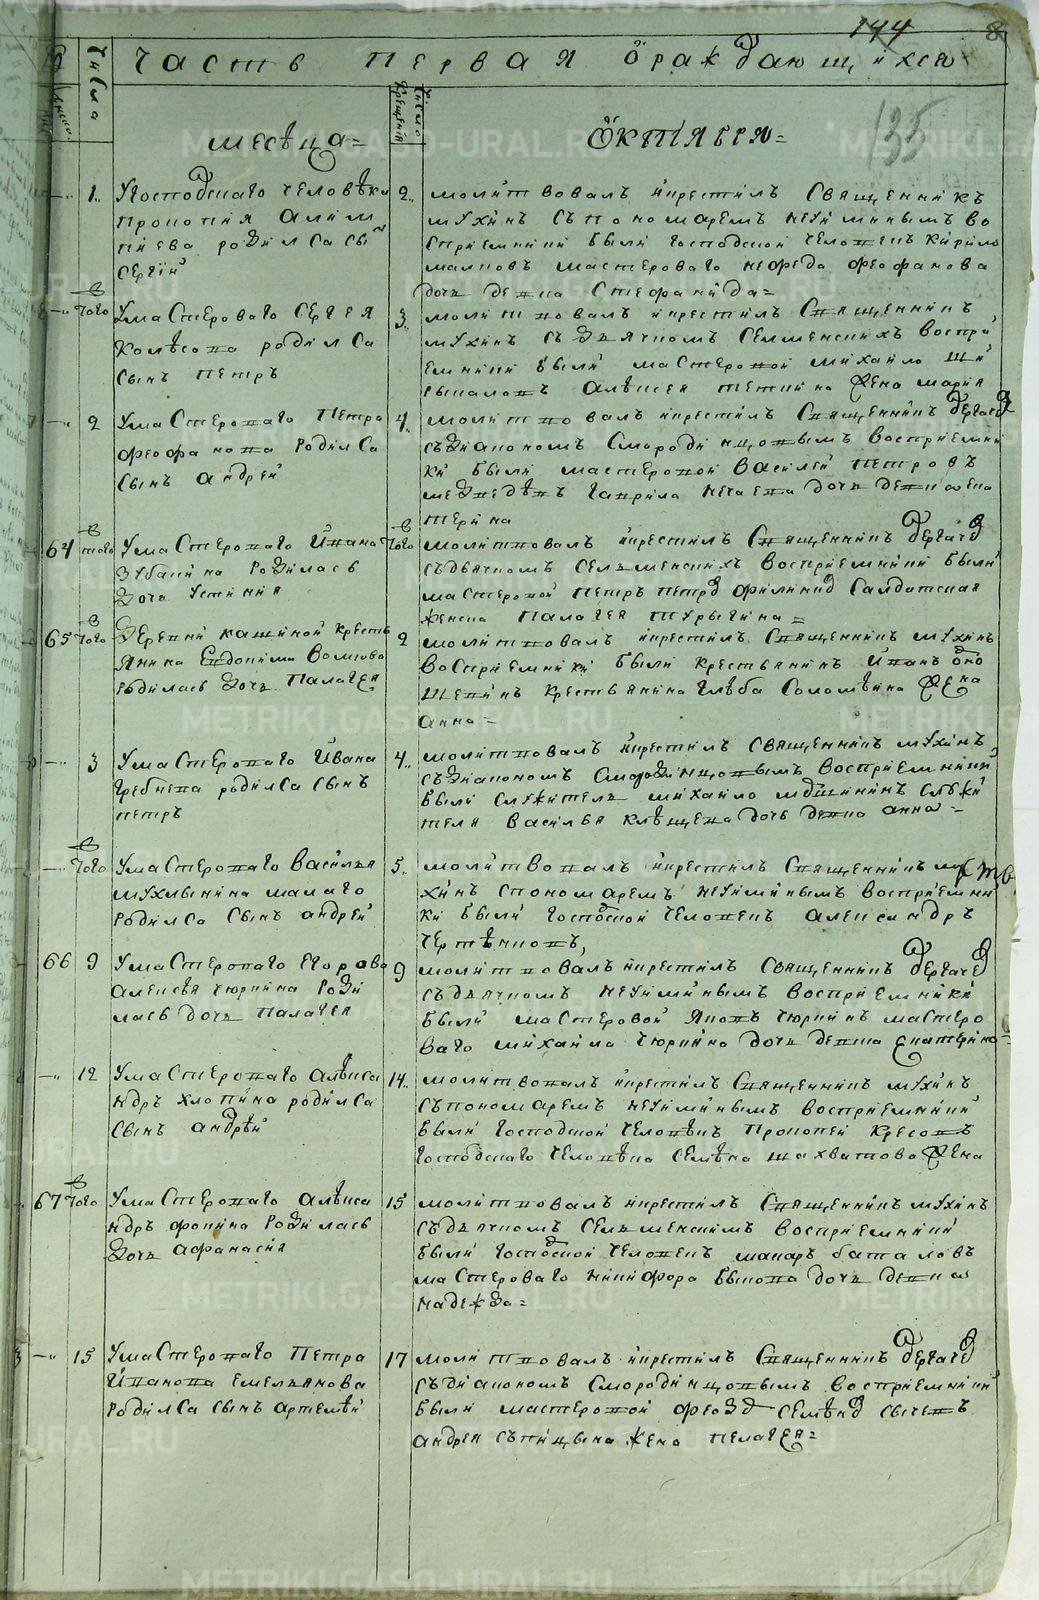 144
8
Числа
Часть первая ораждающихся
Число крещения
135
месяца=
Октября=
1.
У Господскаго человѣка
Прокопия Алим
пиева родился сынъ
Сергий
2.
молитвовалъ икрестилъ Священникъ
Мухинъ съ пономаремъ Неуйминымъ во
сприемники были господской человекъ Кирило
мастероваго Нефеда Феофанова
дочь девка Стефанида=
того
Умастероваго Сергея
Колѣсова родился
сынъ Петръ
3.
молитвовалъ икрестилъ Священникъ
Мухинъ съ дьячкомъ Селменскихъ воспри
емники были мастеровой Михайло
Алѣксея жена Мария
2
Умастероваго Петра
Феофанова родился
сынъ Андрей
4.
молитвовалъ икрестилъ Священникъ Дергачевъ
съдиакономъ Смородинцовымъ восприемни
ки были мастеровой Василей Петровъ
Медведевъ Гаврила Нечаева дочь девка Екате
терина
64
того
Умастероваго Ивана
Зубакина родилась
дочь Устиния
того
молитвовалъ икрестилъ Священникъ Дергачевъ
съдьячкомъ Селменскихъ восприемники были
мастеровой Петръ Петровъ Филиповъ Салдатская
женка Палагея Турыгина=
65
того
Деревни Кашиной кресть
янина Евдокима Волкова
родилась дочь Палагея
2
молитвовалъ икрестилъ Священникъ Мухинъ
Восприемники были крестьянинъ Иванъ Око
крестьянина Глѣба Соломѣина жена
анна=
3
Умастероваго Ивана
Гребнева родился сынъ
петръ
4.
молитвовалъ икрестилъ Священникъ Мухинъ
съдиакономъ Смородинцовымъ восприемники
были служитель Михайло служи
теля Василья Клѣщева дочь девка анна=
того
Умастероваго Василья
Мухлынина малаго
родился сынъ андрей
5.
молитвовалъ икрестилъ Священникъ Му
хинъ спономаремъ Неуйминымъ восприемни
ки были господской человекъ Александръ
Чертѣнковъ,
66
9
Умастероваго Егора
Алексѣя Чюркина роди
лась дочь Палагея
9
молитвовалъ икрестилъ Священникъ Дергачевъ
съдьячкомъ Неуйминымъ восприемники
были мастеровой Яковъ Чюркинъ мастеро
ваго Михаила Чюркина дочь девка Екатерина=
12
Умастероваго Алѣкса
ндръ Хлопина родился
сынъ Андрѣй
14.
молитвовалъ икрестилъ Священникъ Мухинъ
съпономаремъ Неуйминымъ восприемники
были Господской человѣкъ Прокопей Кресовъ
господскаго человѣка Семѣна Шахватова жена
67
того
Умастероваго Алѣкса
ндръ Фокина родилась
дочь Афанасия
15
молитвовалъ икрестилъ Священникъ Мухинъ
съдьячкомъ Сельменскимъ восприемники
были господской человекъ Макаръ Баталовъ
мастероваго Никифора Быкова дочь девка
Надежда=
15
Умастероваго Петра
Иванова Емельянова
родился сынъ Артемѣй
17
молитвовалъ икрестилъ Священникъ Дергачевъ
съдиакономъ Смородинцовымъ восприемники
были мастеровой Феодъ Семѣновъ Сычевъ
андрея съпицына жена Пелагея=